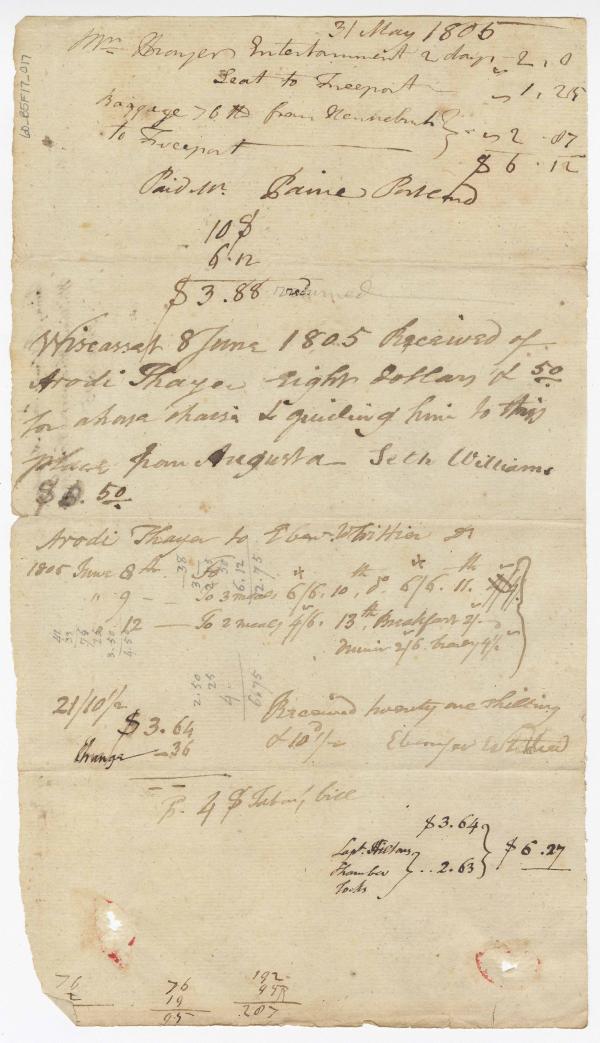 31 May 1805
Mr Thayer Entertainment 2 days 2,0
Seat to Freeport 1,25
Baggage 76 lb from Kennebunk
to Freeport 2.87
$6.12
Paid Mr. Paine Portland
10$
6.12
$3.88 returned
Wiscasset 8 June 1805 Received of
Arodi Thayer eight dollars & 50
for a horse chaise & guiding him to this
place from Augusta Seth Williams
$8.50
Arodi Thayer to Eben. Whittier Dr
1805 June 8th To
" 9 — To 3 meals 6/6. 10th, do 6/6. 11th
12 — To 2 meals 4/6. 13th, Breakfast 2/
Dinner 2/6.
21/10 1/2
$3.64
Change 36
Received twenty one shilling
& 10d 1/2 Ebenezer Whittier
4$ Tabor, bill
$3.64
Capt. Hiltons
Chamber .. 2.63
Locks
$6.27
76
2
76
19
95
192
95
287
38
2.75
6.12
12.75
41
33
76
2.50
3.50
4.50
2.50
25
4
6.75
60-B5F17-017